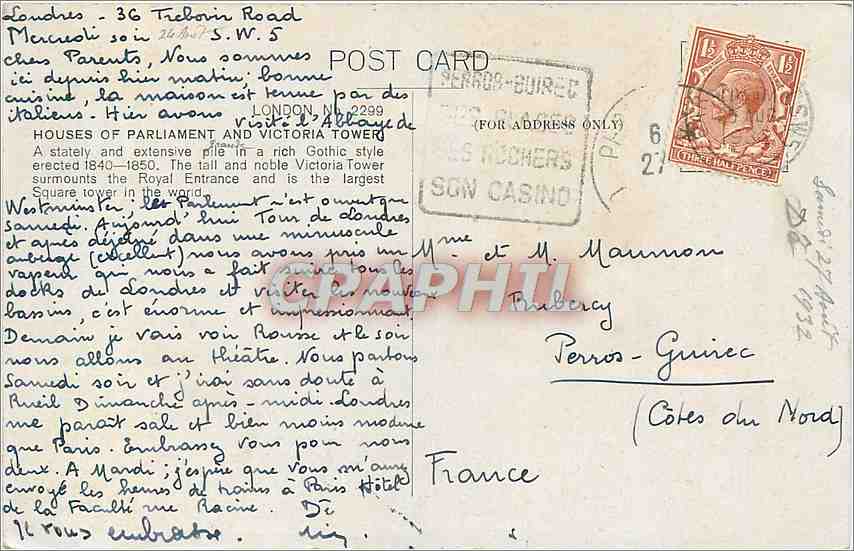 Londres - 36 Trebovir Road
Mercredi soir 24 Août S.W.5
chers Parents, Nous sommes
ici depuis hier matin; bonne
cuisine, la maison est tenue par des
italiens. Hier avons visité l'Abbaye de
POST CARD
LONDON No. 2299
HOUSES OF PARLIAMENT AND VICTORIA TOWER
A stately and extensive pile in a rich Gothic style
erected 1840—1850. The tall and noble Victoria Tower
surmounts the Royal Entrance and is the largest
Square tower in the world.
Westminster, le Parlement n'est ouvert que
Samedi. Aujourd'hui Tour de Londres
et après déjeuné dans une minuscule
auberge (excellent) nous avons pris un
vapeur qui nous a fait suivre tous les
docks de Londres et visiter les nouveaux
bassins, c'est énorme et impressionnant.
Demain je vais voir Rousse et le soir
nous allons au théâtre. Nous partons
Samedi soir et j'irai sans doute à
Rueil Dimanche après-midi. Londres
me paraît sale et bien moins moderne
que Paris. Embrassez vous pour nous
deux. A Mardi; j'espère que vous m'aurez
envoyé les heures de trains à Paris Hôtel
de la Faculté rue Racine. Dé
Il vous embrasse.
(FOR ADDRESS ONLY)
PERROS-GUIREC
SES PLAGES
SES ROCHERS
SON CASINO
6
27
1½ 1½
THREE HALF PENCE
Samedi 27 Août
1932
Mme et M. Maumon
Perros-Guirec
(Côtes du Nord)
France
CPAPHIL